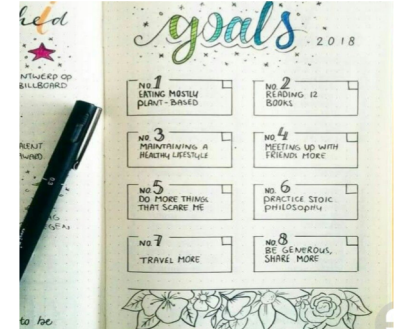 NTWERP OP
BILLBOARD
goals
2018
NO. 1
EATING MOSTLY
PLANT-BASED
NO. 2
READING 12
BOOKS
NO. 3
MAINTAINING A
HEALTHY LIFESTYLE
NO. 4
MEETING UP WITH
FRIENDS MORE
NO. 5
DO MORE THINGS
THAT SCARE ME
NO. 6
PRACTICE STOIC
PHILOSOPHY
NO. 7
TRAVEL MORE
NO. 8
BE GENEROUS,
SHARE MORE
to be